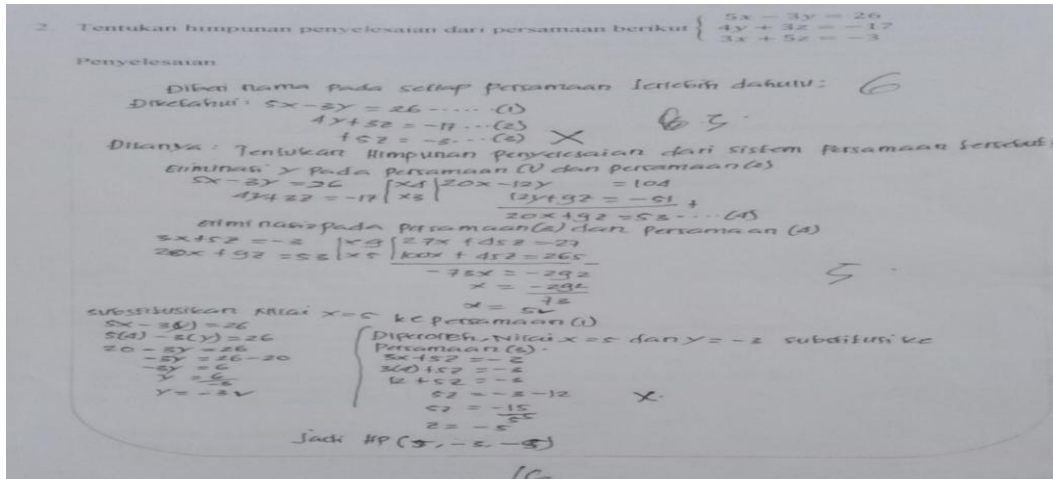 2. Tentukan himpunan penyelesaian dari persamaan berikut { 5x − 3y = 26
4y + 3z = −17
3x + 5z = −3
Penyelesaian
Diberi nama pada setiap persamaan terlebih dahulu: 6
Diketahui: 5x − 3y = 26 ..... (1)
4y + 5z = −17 ... (2)
+ 5z = −3 ... (3) X
Ditanya: Tentukan Himpunan penyelesaian dari sistem persamaan tersebut
Eliminasi y pada persamaan (1) dan persamaan (2)
5x − 3y = 26 | x4 | 20x − 12y = 104
4y + 3z = −17 | x3 | 12y + 9z = −51 +
20x + 9z = 53 .... (4)
eliminasi z pada persamaan (3) dan persamaan (4)
3x + 5z = −3 | x9 | 27x + 45z = −27
20x + 9z = 53 | x5 | 100x + 45z = 265 −
−73x = −292
x = −292
73
x = 5 5
substitusikan nilai x = 5 ke persamaan (1)
5(4) − 3(y) = 26
20 − 3y = 26
−3y = 26 − 20
−3y = 6
y = 6
y = −3
Diperoleh, Nilai x = 5 dan y = −3 subtitusi ke
Persamaan (3).
3x + 5z = −3
3(4) + 5z = −3
12 + 5z = −3
5z = −3 − 12 X.
5z = −15
z = −5
Jadi HP (5, −3, −5)
16